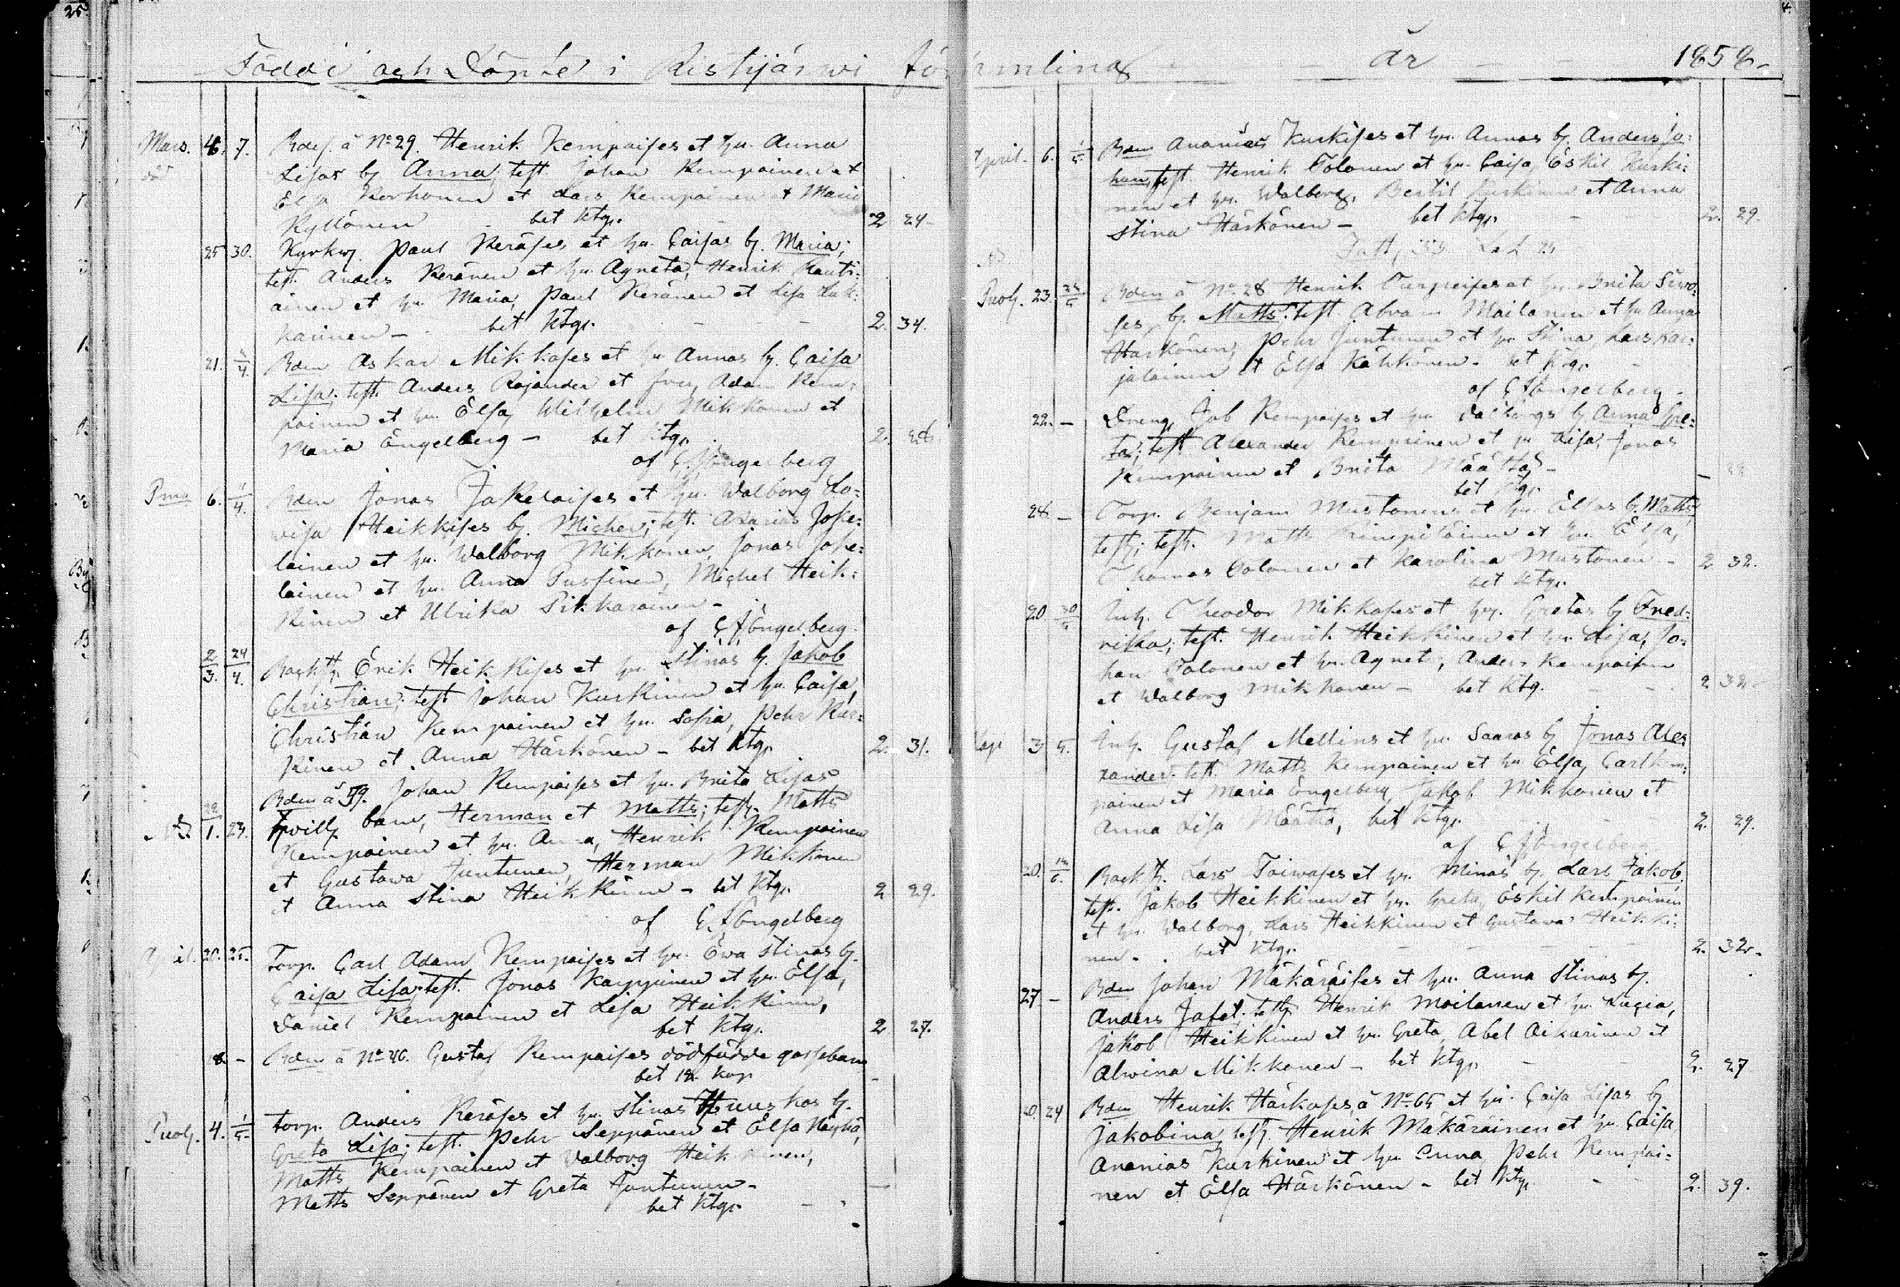 Födde och Döpte i Ristijärwi församling år 1858
Mars. 6. 7. Bdes. â No 29. Henrik Kempaises et hu. Anna
Lisas b. Anna; test. Johan Kempainen et
Elsa Korhonen et Lars Kempainen & Maria
Kyllönen bet Ktgr. 2 24
25 30. Kyrkv. Paul Keräses et hu. Caisas b. Maria;
test. Anders Keränen et hu. Agneta, Henrik Rauti-
ainen et hu. Maria, Paul Keränen et Lisa Luk-
karinen - bet Ktgr. 2. 34.
21. 4. Bden Askar Mikkoses et hu Annas b. Caisa
Lisa; test. Anders Rajander et fru, Adam Kem-
painen et hu. Elsa, Wilhelm Mikkonen et
Maria Engelberg - bet Ktgr. 2. 
af Engelberg
6. 1/4. Bden Jonas Jokelaises et hu. Walborg Lo-
visa Heikkises b. Michel; test. Azarias Joke-
lainen et hu. Walborg Mikkonen, Jonas Joke-
lainen et hu. Anna Pussinen, Michel Heik-
kinen et Ulrika Pikkarainen -
af Engelberg.
2/3. 24/4. Erik Heikkises et hu Stinas b. Jakob
Christian; test Johan Kurkinen et hu. Caisa,
Christian Kempainen et hu. Sofia, Pehr Kur-
kinen et Anna Härkönen - bet Ktgr 2. 31.
Bden â 59. Johan Kempaises et hu. Brita Lisas
1. 23. twill. barn, Herman et Matts; test. Matts
Kempainen et hu. Anna, Henrik Kempainen
et Gustava Juntunen, Herman Mikkonen
et Anna Stina Heikkinen - bet Ktgr. 2 29.
af Engelberg
April. 20. 25. Torp. Carl Adam Kempaises et hu. Ewa Stinas b.
Caisa Lisa; test. Jonas Karppinen et hu. Elsa,
Daniel Kempainen et Lisa Heikkinen,
bet Ktgr. 2 27.
8. - Bden â No 46. Gustaf Kempaises dödfödde gossebarn
bet 12. kop
4. 1/5. Torp. Anders Keräses et hu. Stinas b.
Greta Lisa; test. Pehr Seppänen et Elsa
Matts Kempainen et Valborg Heikkinen,
Matts Seppänen et Greta Juntunen -
bet Ktgr.
April. 6. 1/5. Bden Ananias Kurkises et hu. Annas b. Anders Jo-
han; test. Henrik Tolonen et hu. Caisa, Eskil Kurki-
nen et hu. Walborg, Bertil Kurkinen et Anna
Stina Härkönen - bet Ktgr. 2. 29.
23. Bden â No 28 Henrik Turpeises et hu. Brita
b. Matts; test. Abram Moilanen et hu Anna
Härkönen, Pehr Juntunen et hu Stina, Lars Kar-
jalainen et Elsa Kähkönen - bet Ktgr.
af Engelberg -
22. - Dreng Job Kempaises et hu Walborgs b. Anna Gre-
ta; test Alexander Kempainen et hu Lisa, Jonas
Kempainen et Brita Määttä -
bet Ktgr.
28. - Torp. Benjam Mustonens et hu. Elsas b. Matts
test. Matts Kempainen et hu. Elsa,
Thomas Tolonen et Karolina Mustonen - 2 32.
bet Ktgr.
20 30 Inh. Theodor Mikkoses et hu. Gretas b. Fred-
rika; test. Henrik Heikkinen et hu. Lisa, Jo-
han Tolonen et hu. Agnet, Anders Kempainen
et Walborg Mikkonen - bet Ktgr. 2 32 -
3 5. Inh. Gustaf Mellins et hu. Saaras b Jonas Alex
xander; test. Matts Kempainen et hu Elsa, Carl Kem-
painen et Maria Engelberg, Jakob Mikkonen et
Anna Lisa Määttä, bet Ktgr. 2. 29.
af Engelberg
20. Lars Toiwases et hu. Minas b. Lars Jakob
test. Jakob Heikkinen et hu. Greta, Eskil Kempainen
et hu. Walborg, Lars Heikkinen et Gustava Heikki-
nen - bet Ktgr. 2. 32.
27 - Bden Johan Mäkäräises et hu. Anna Stinas b.
Anders Jafet; test. Henrik Moilanen et hu Lucia,
Jakob Heikkinen et hu. Greta, Abel Aikarinen et
Alwina Mikkonen - bet Ktgr. 2. 27
24 Bden Henrik Härkoses, â No 65 et hu. Caisa Lisas b
Jakobina, test. Henrik Mäkäräinen et hu Caisa
Ananias Kurkinen et hu Anna, Pehr Kempai-
nen et Elsa Härkönen - bet Ktgr 2. 39.